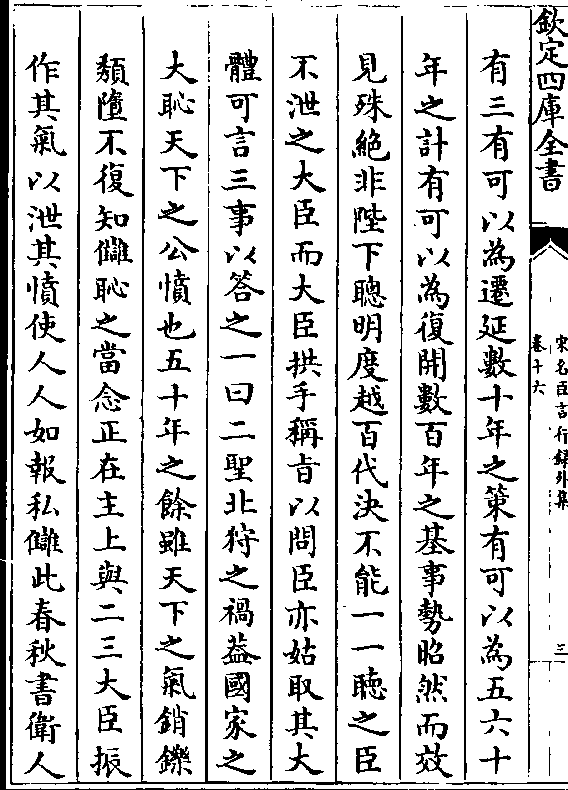 欽定四庫全書
宋名臣言行録外集
卷十六
三
有三有可以為遷延數十年之策有可以為五六十
年之計有可以為復開數百年之基事勢昭然而效
見殊絶非陛下聰明度越百代決不能一一聽之臣
不泄之大臣而大臣拱手稱旨以問臣亦姑取其大
體可言三事以答之一曰二聖北狩之禍葢國家之
大恥天下之公憤也五十年之餘雖天下之氣銷鑠
頽墮不復知讎恥之當念正在主上與二三大臣振
作其氣以泄其憤使人人如報私讎此春秋書衛人